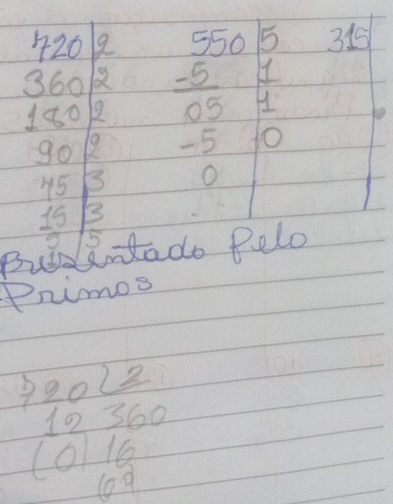 720 2 550 5 315
360 2 -5 1
180 2 05 1
90 2 -5 0
45 3 0
15 3
5 5
Presentado Pelo
Primos
720 2
12 360
(0) 16